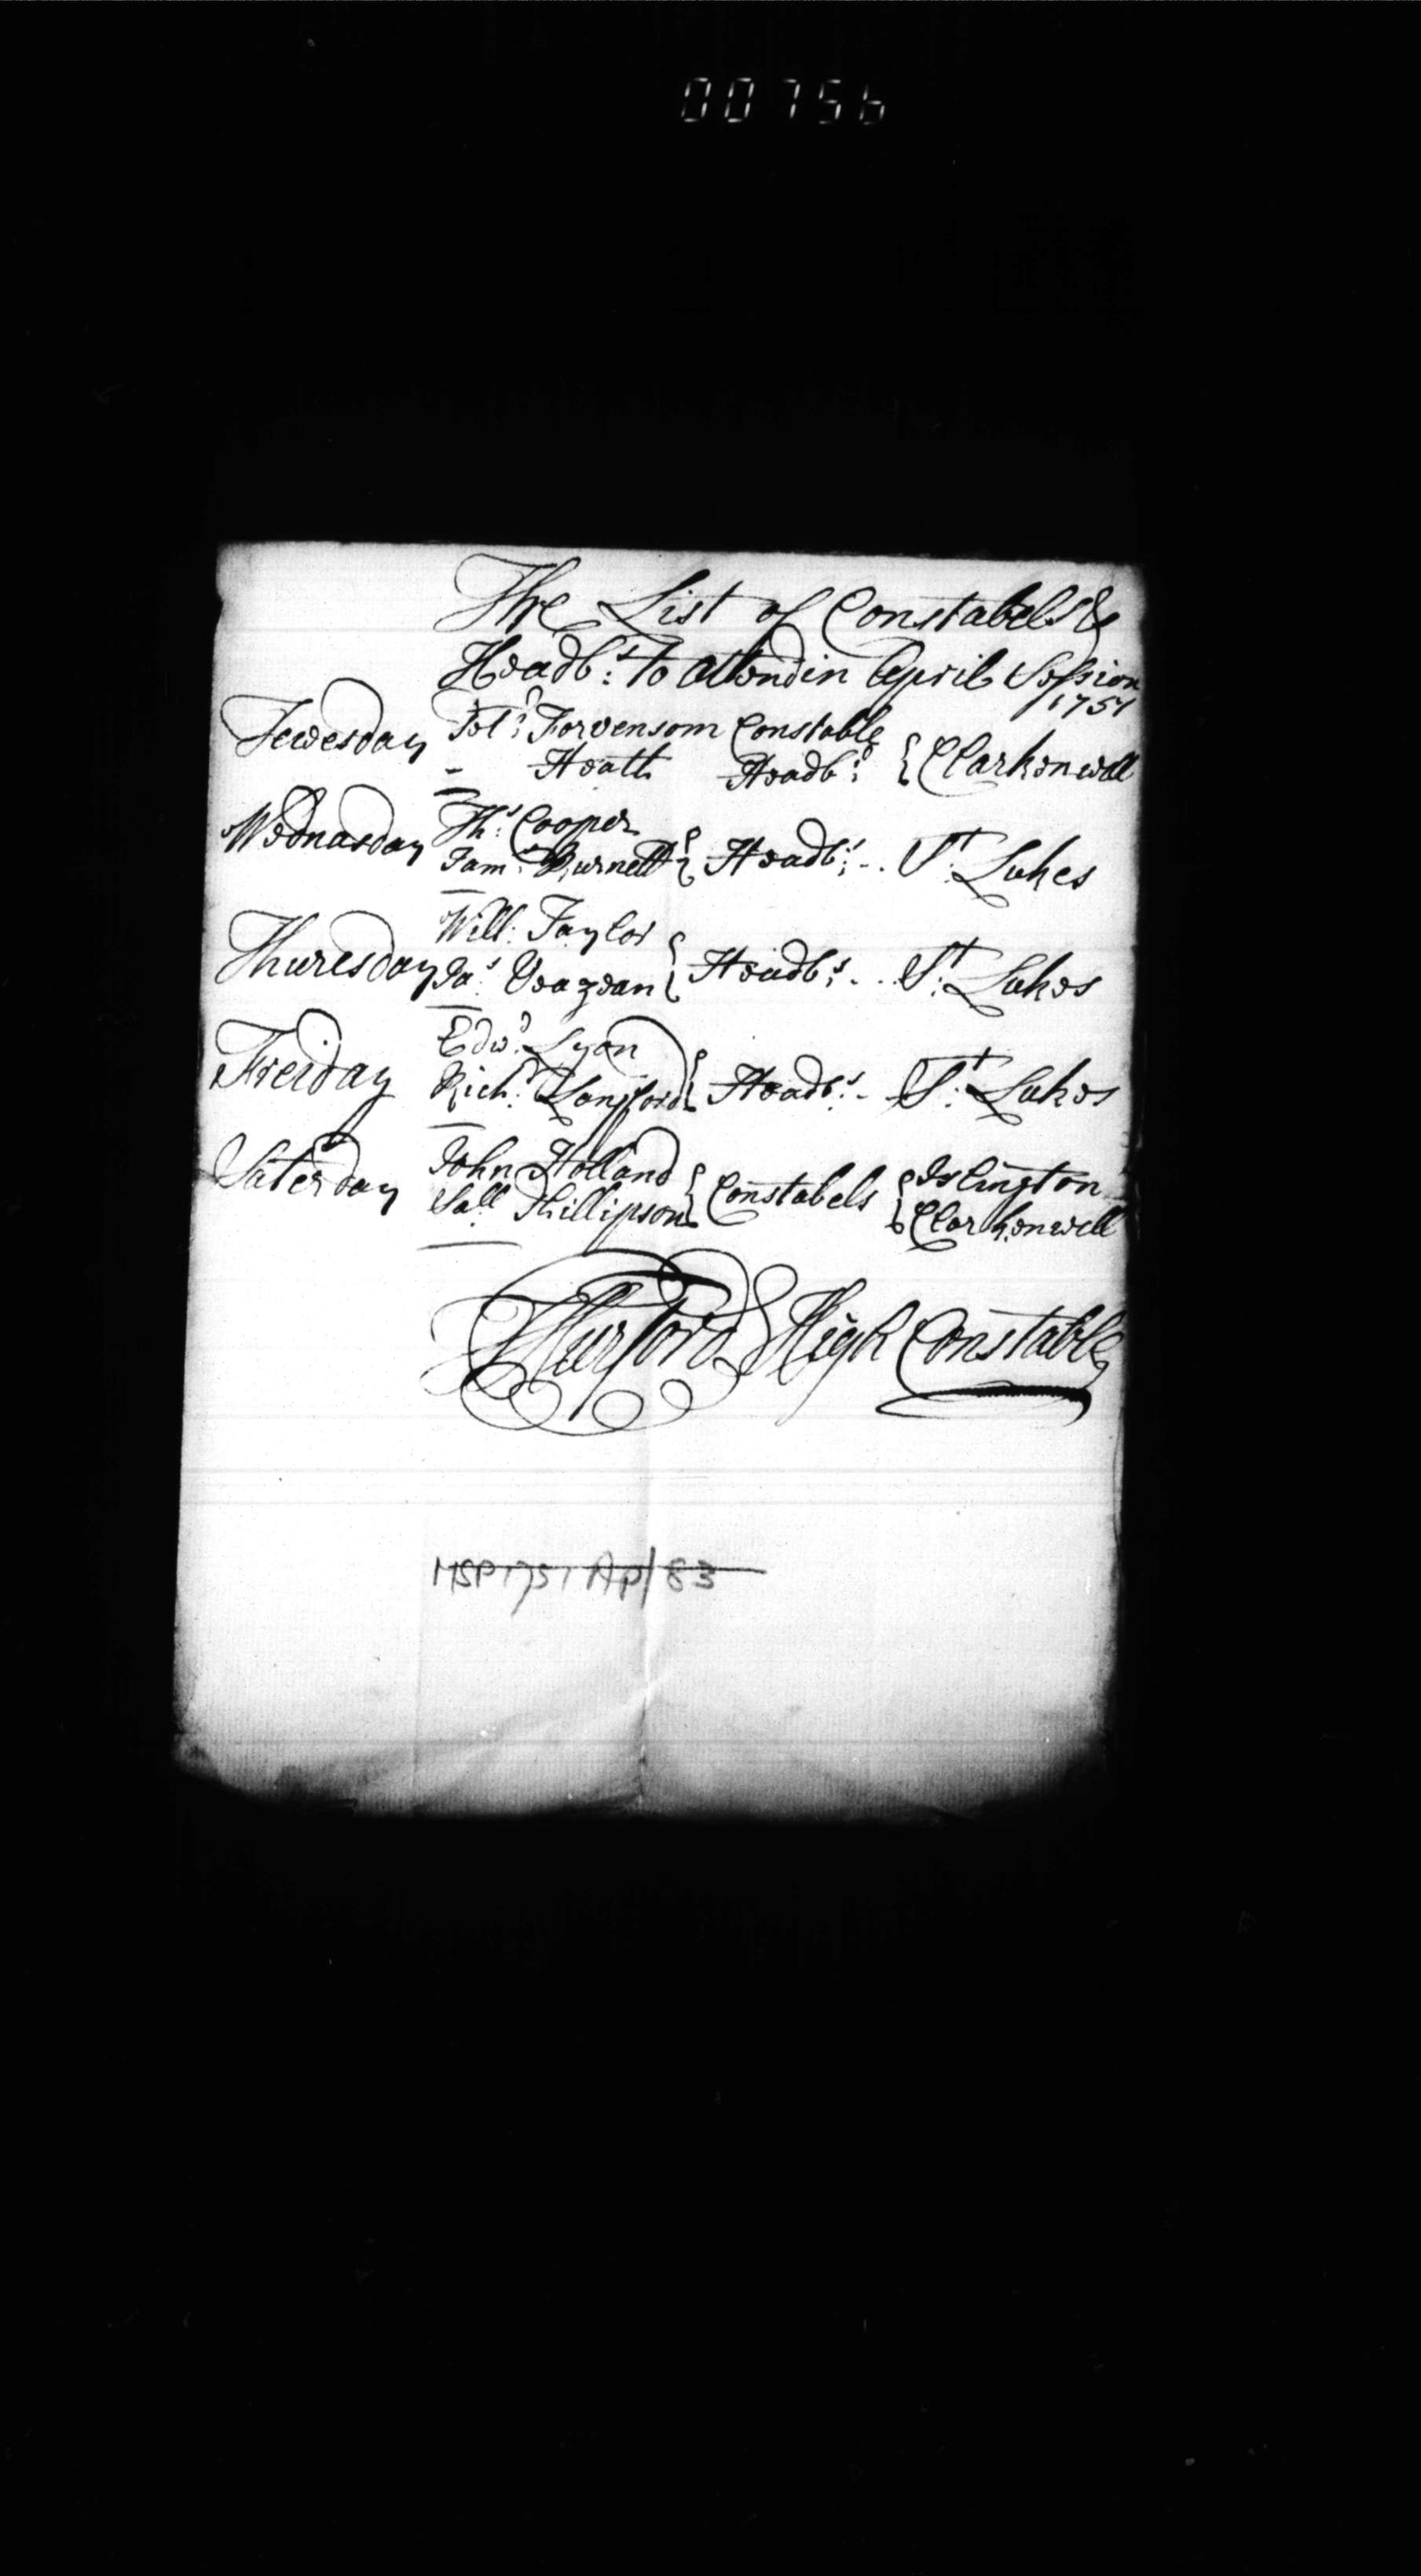 00756
The List of Constabels &
Headbs: to attend in Aprill Session
1751
Tewesday Forvensom Constable
Heath Headb: { Clarkenwell
Wednasday Ths: Cooper
Jams: Burnett } Headbs: .. St: Lukes
Thuresday Will: Taylor
Jas: Veazean } Headbs: .. St: Lukes
Freiday Edwd: Lyon
Richd: Langford } Headbs: - St: Lukes
Saterday John Holland } Constabels { Islington
Sall: Phillipson Clarkenwell
Hurford High Constable
MSP 1751 Ap/83